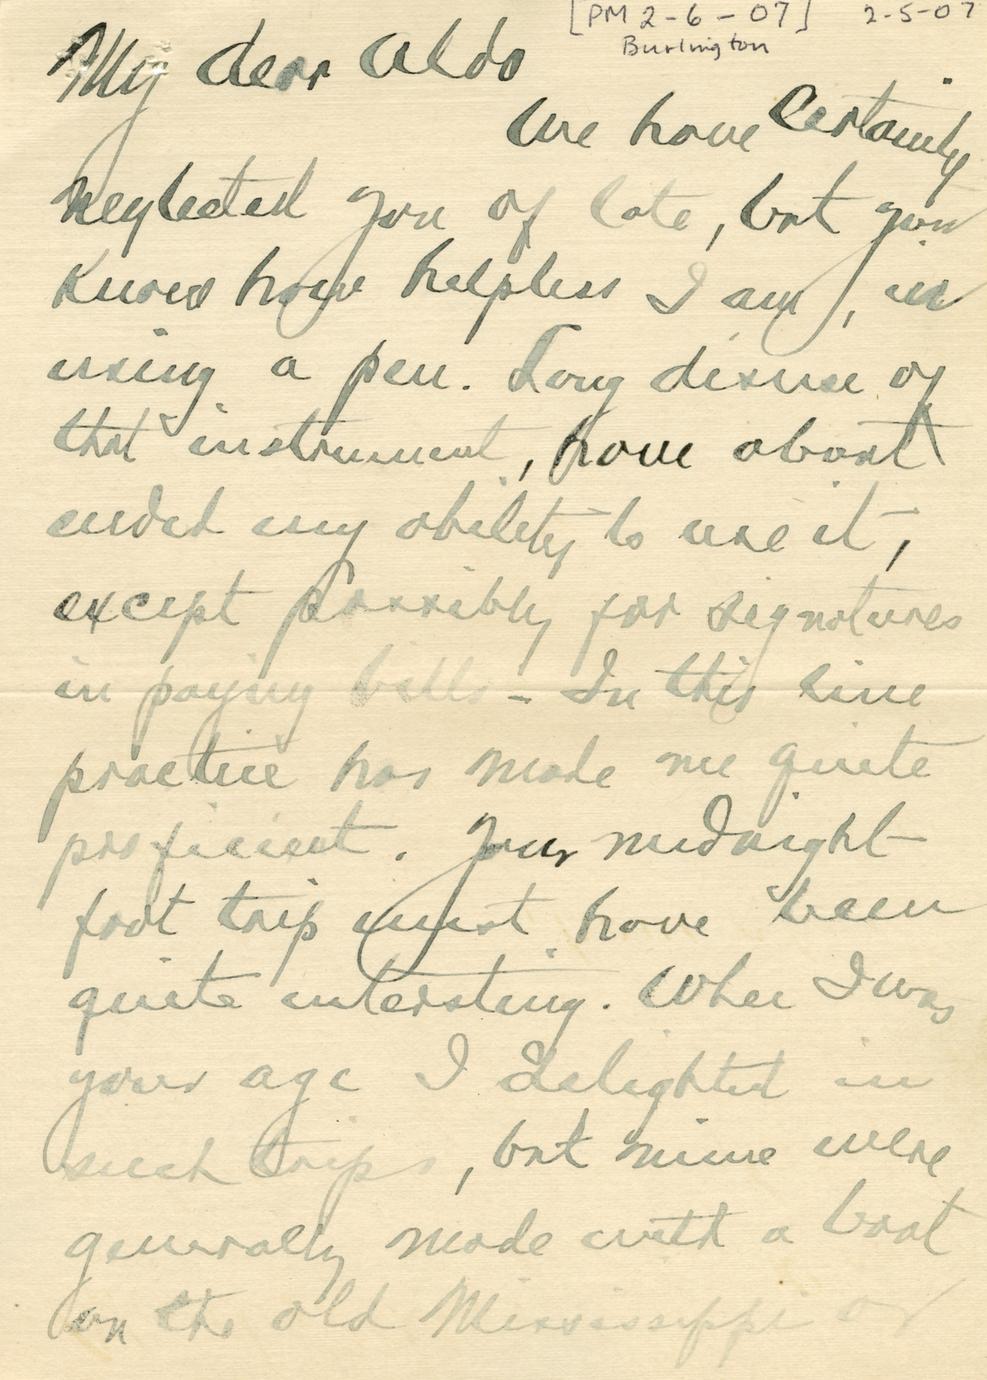 [PM 2-6-07] 2-5-07
Burlington
My dear Aldo
We have certainly
neglected you of late, but you
know how helpless I am, in
using a pen. Long disuse of
that instrument, have about
ended my ability to use it,
except possibly for signatures
in paying bills - In this line
practice has made me quite
proficient. Your midnight
foot trip must have been
quite intersting. When I was
your age I delighted in
such trips, but mine were
generally made with a boat
on the old Mississippi or